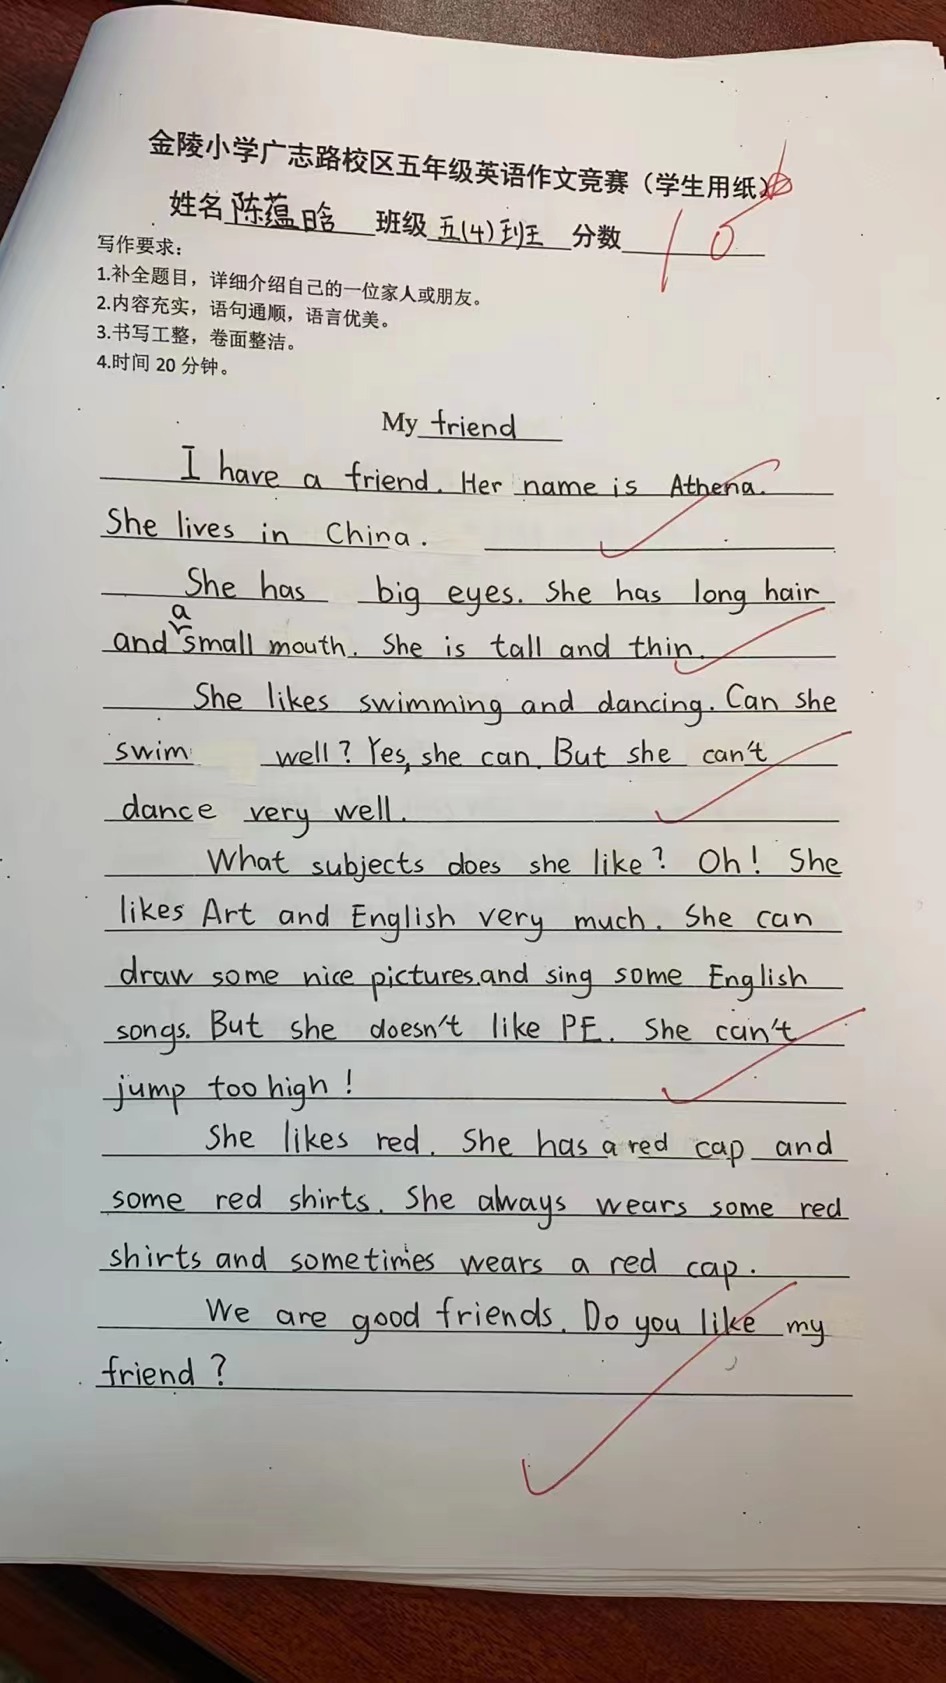 金陵小学广志路校区五年级英语作文竞赛（学生用纸）
姓名 陈蕴晗 班级 五(4)班 分数 10
写作要求：
1.补全题目，详细介绍自己的一位家人或朋友。
2.内容充实，语句通顺，语言优美。
3.书写工整，卷面整洁。
4.时间 20 分钟。
My friend
I have a friend. Her name is Athena.
She lives in China.
She has big eyes. She has long hair
and a small mouth. She is tall and thin.
She likes swimming and dancing. Can she
swim well? Yes, she can. But she can't
dance very well.
What subjects does she like? Oh! She
likes Art and English very much. She can
draw some nice pictures.and sing some English
songs. But she doesn't like PE. She can't
jump too high!
She likes red. She has a red cap and
some red shirts. She always wears some red
shirts and sometimes wears a red cap.
We are good friends. Do you like my
friend?